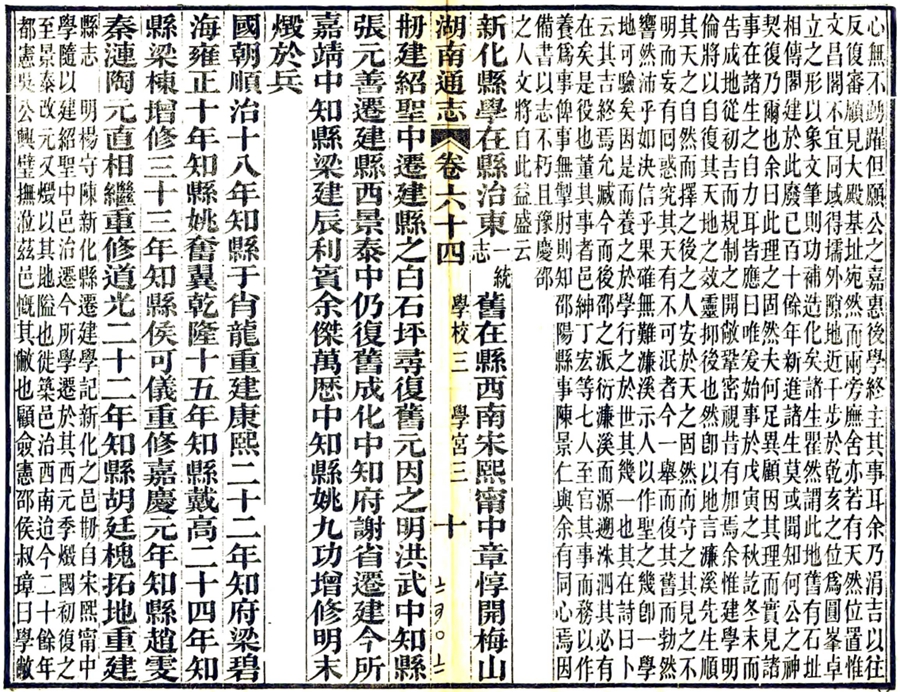 心無不踴躍但願公之嘉惠後學終主其事耳余乃涓吉以往
反復審顧見大殿基址宛然而兩旁廡舍亦若有天然位置惟
文昌閣不宜同域得墻外隙地近千步於乾亥之位爲圓峯卓
立之形以象文筆則功補造化矣諸生翟然謂此地舊有石址
相傳閣建於此廢已百十餘年新進諸生莫或聞知何公之神
契復乃爾也余曰此理之固然夫何足異顧因其理而實見諸
事在諸生之自力耳皆應曰唯唯爰始事於戊寅之秋訖冬末而
告成地從初吉而規制之開敞鞏密視昔有加焉余惟建學明
倫將以自復其天地之效靈抑後也然卽以地言濂溪先生順
其天之自然而擇之後之人安於天之固然而守之其見之不
明而妄有回惑究其天有不可泯者今一舉而復其舊而勃然
響然沛乎如決信乎果確無難濂溪示人以作聖之幾卽一學
地可驗矣因是而養之於學行之於世其幾一也其在詩曰卜
云其吉終焉允臧今而後邵之派衍濂溪而源遡洙泗其必有
在矣是役也董其事者邑紳丁宏等七人至官其事而務以作
養爲事俾事無掣肘則知邵陽縣事陳景仁與余有同心焉因
備書以志不朽且豫慶邵
之人文將自此益盛云
新化縣學在縣治東一統志舊在縣西南宋熙甯中章惇開梅山
湖南通志 卷六十四 學校三 學宮三 十
剏建紹聖中遷建縣之白石坪尋復舊元因之明洪武中知縣
張元善遷建縣西景泰中仍復舊成化中知府謝省遷建今所
嘉靖中知縣梁建辰利賓余傑萬歷中知縣姚九功增修明末
燬於兵
國朝順治十八年知縣于肖龍重建康熙二十二年知府梁碧
海雍正十年知縣姚奮翼乾隆十五年知縣戴高二十四年知
縣梁棟增修三十三年知縣侯可儀重修嘉慶元年知縣趙雯
秦漣陶元直相繼重修道光二十二年知縣胡廷槐拓地重建
縣志 明楊守陳新化縣遷建學記新化之邑剏自宋熙甯中
學隨以建紹聖中邑治遷今所學遷於其西元季燬國初復之
至景泰改元又燬以其地隘也徙築邑治西南迨今二十餘年
都憲吳公興璧撫涖茲邑慨其敝也顧僉憲邵侯叔璋曰學敝